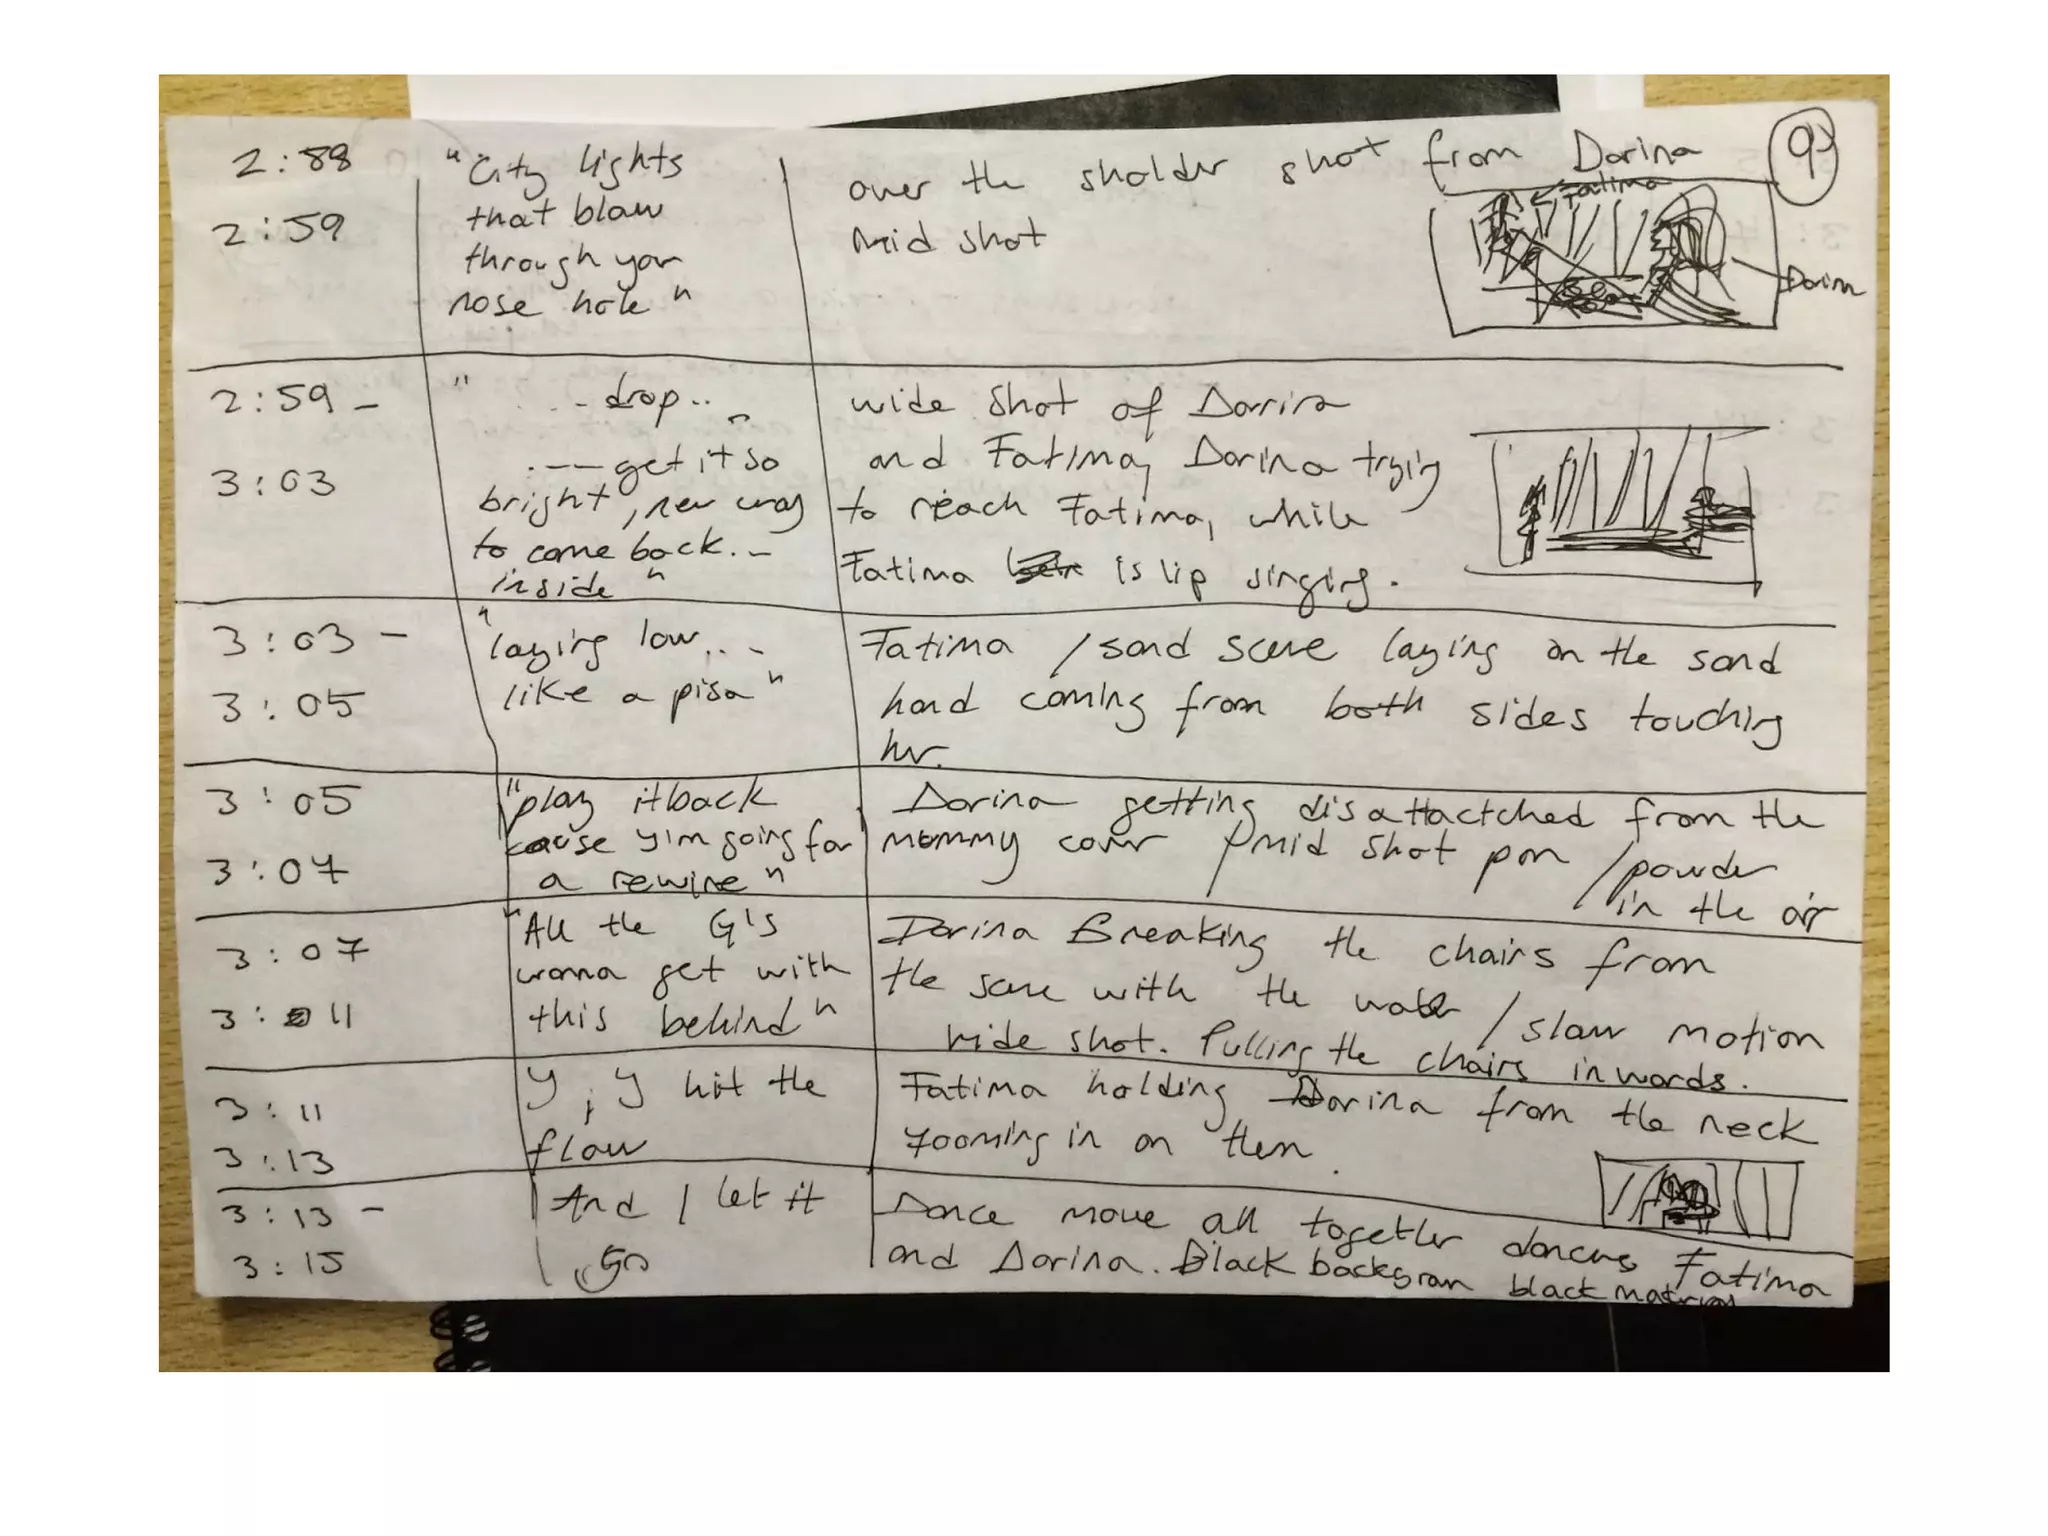 9
2:58
2:59
"City lights
that blow
through your
nose hole"
over the sholder shot from Dorina
mid shot
Fatima
Dorin
2:59 -
3:03
" .. drop..
"
.--- get it so
bright, new way
to come back..-
inside"
wide shot of Dorina
and Fatima, Dorina trying
to reach Fatima, while
Fatima is lip singing.
3:03 -
3:05
"laying low..-
like a pisa"
Fatima / sand scene laying on the sand
hand coming from both sides touching
her.
3:05
3:07
"play it back
cause y'im going for
a rewine"
Dorina getting disattactched from the
mommy cover / mid shot pan / powder
in the air
3:07
3:11
"All the G's
wanna get with
this behind"
Dorina Breaking the chairs from
the scene with the water / slow motion
wide shot. Pulling the chairs inwards.
3:11
3:13
Y, Y hit the
flow
Fatima holding Dorina from the neck
zooming in on them.
3:13 -
3:15
And I let it
go
Dance move all together dancers, Fatima
and Dorina. Black backgroun black material